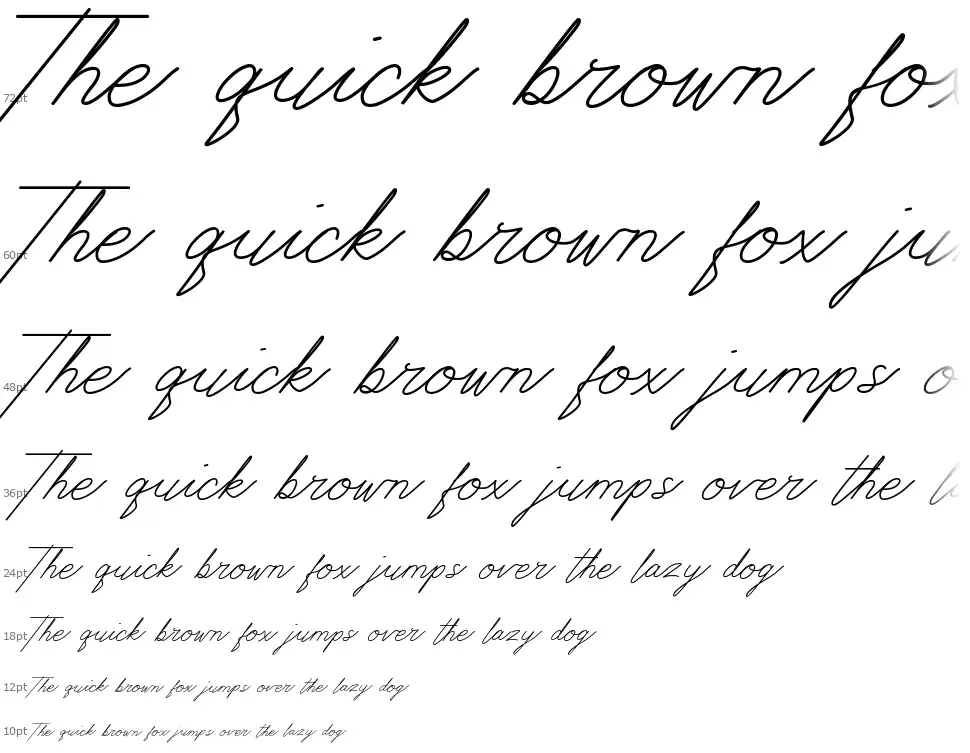 72pt The quick brown fox
60pt The quick brown fox ju
48pt The quick brown fox jumps o
36pt The quick brown fox jumps over the l
24pt The quick brown fox jumps over the lazy dog
18pt The quick brown fox jumps over the lazy dog
12pt The quick brown fox jumps over the lazy dog
10pt The quick brown fox jumps over the lazy dog